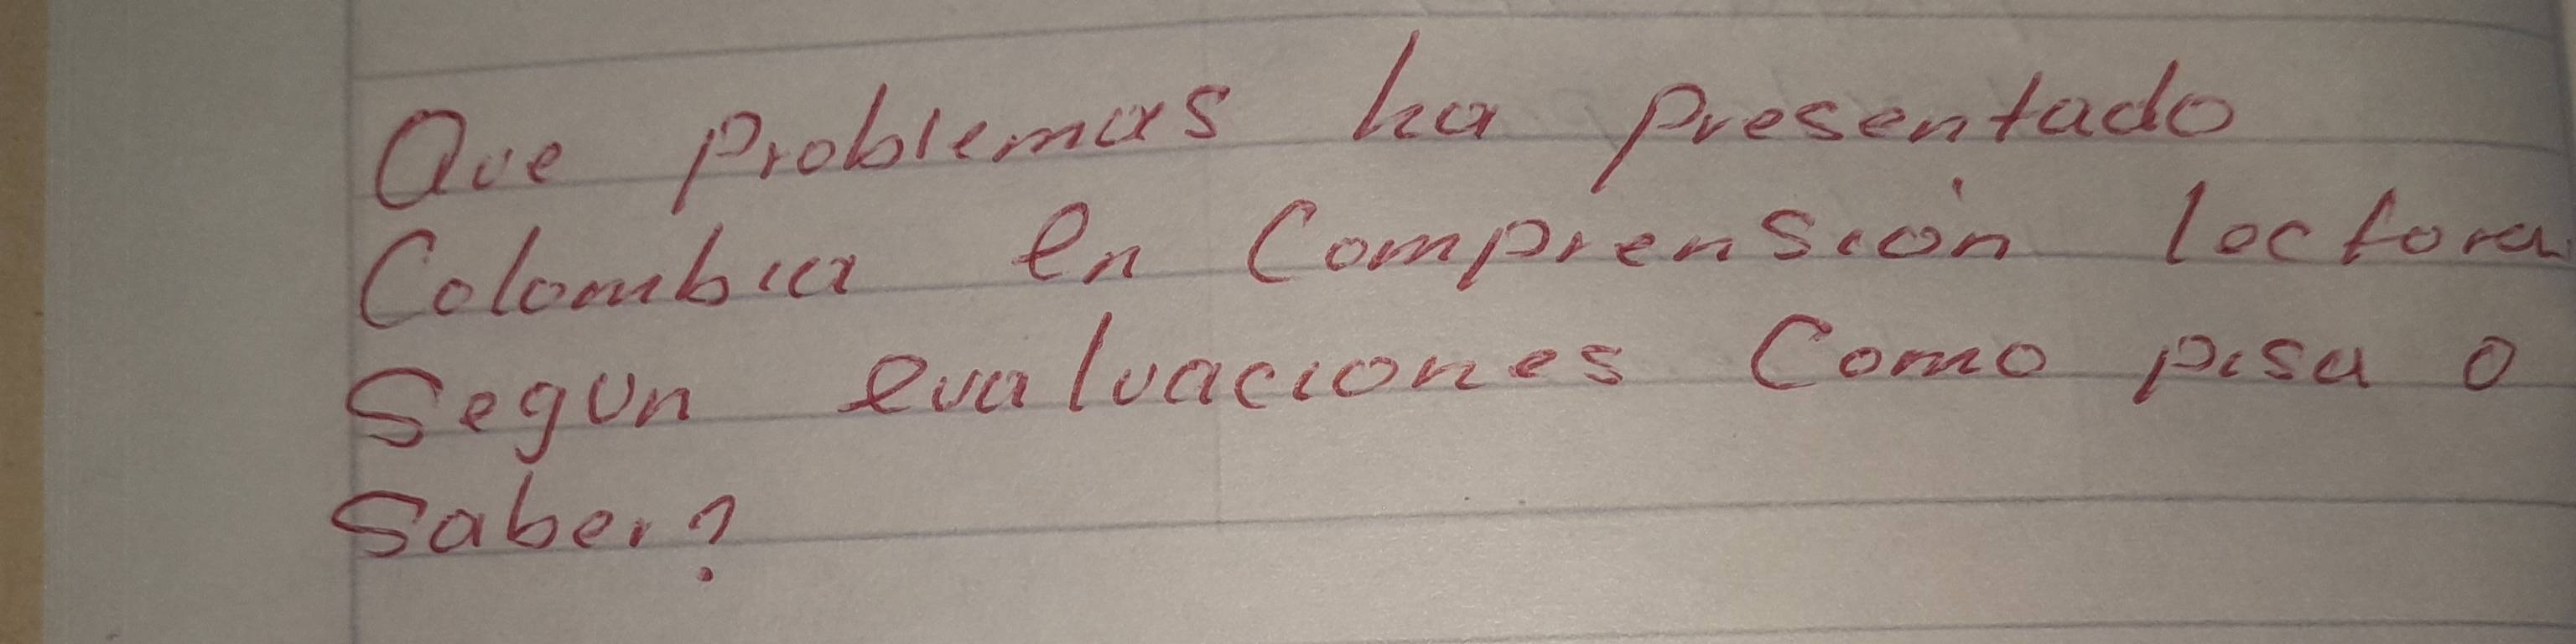 Que problemas ha presentado
Colombia en Comprensión lectora
Segun evaluaciones Como pisa o
Saber?